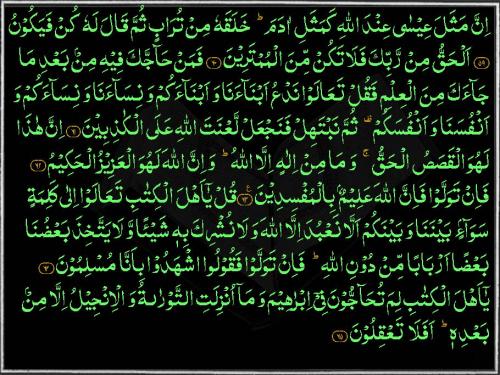 اِنَّ مَثَلَ عِيْسٰى عِنْدَ اللّٰهِ كَمَثَلِ اٰدَمَ ؕ خَلَقَهٗ مِنْ تُرَابٍ ثُمَّ قَالَ لَهٗ كُنْ فَيَكُوْنُ
﴿۵۹﴾ اَلْحَقُّ مِنْ رَّبِّكَ فَلَا تَكُنْ مِّنَ الْمُمْتَرِيْنَ ﴿۶۰﴾ فَمَنْ حَآجَّكَ فِيْهِ مِنْۢ بَعْدِ مَا
جَآءَكَ مِنَ الْعِلْمِ فَقُلْ تَعَالَوْا نَدْعُ اَبْنَآءَنَا وَ اَبْنَآءَكُمْ وَ نِسَآءَنَا وَ نِسَآءَكُمْ وَ
اَنْفُسَنَا وَ اَنْفُسَكُمْ ۟ ثُمَّ نَبْتَهِلْ فَنَجْعَلْ لَّعْنَتَ اللّٰهِ عَلَى الْكٰذِبِيْنَ ﴿۶۱﴾ اِنَّ هٰذَا
لَهُوَ الْقَصَصُ الْحَقُّ ۚ وَ مَا مِنْ اِلٰهٍ اِلَّا اللّٰهُ ؕ وَ اِنَّ اللّٰهَ لَهُوَ الْعَزِيْزُ الْحَكِيْمُ ﴿۶۲﴾
فَاِنْ تَوَلَّوْا فَاِنَّ اللّٰهَ عَلِيْمٌۢ بِالْمُفْسِدِيْنَ ﴿۶۳﴾ قُلْ يٰۤاَهْلَ الْكِتٰبِ تَعَالَوْا اِلٰى كَلِمَةٍ
سَوَآءٍۭ بَيْنَنَا وَ بَيْنَكُمْ اَلَّا نَعْبُدَ اِلَّا اللّٰهَ وَ لَا نُشْرِكَ بِهٖ شَيْـًٔا وَّ لَا يَتَّخِذَ بَعْضُنَا
بَعْضًا اَرْبَابًا مِّنْ دُوْنِ اللّٰهِ ؕ فَاِنْ تَوَلَّوْا فَقُوْلُوا اشْهَدُوْا بِاَنَّا مُسْلِمُوْنَ ﴿۶۴﴾
يٰۤاَهْلَ الْكِتٰبِ لِمَ تُحَآجُّوْنَ فِيْۤ اِبْرٰهِيْمَ وَ مَاۤ اُنْزِلَتِ التَّوْرٰىةُ وَ الْاِنْجِيْلُ اِلَّا مِنْۢ
بَعْدِهٖ ؕ اَفَلَا تَعْقِلُوْنَ ﴿۶۵﴾